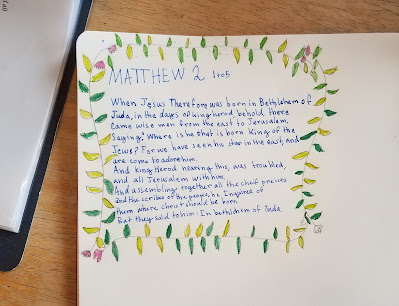 MATTHEW 2 1to5
When Jesus Therefore was born in Bethlehem of
Juda, in the days of king herod, behold, there
Came wise men from the east to Jerusalem,
Saying: Where is he that is born king of the
Jews? For we have seen his star in the east, and
are come to adore him.
And king Herod hearing this, was troubled,
and all Jerusalem with him.
And assembling together all the cheif preists
and the scribes of the people, he inquired of
them where christ should be born.
But they said to him: In bethlehem of Juda